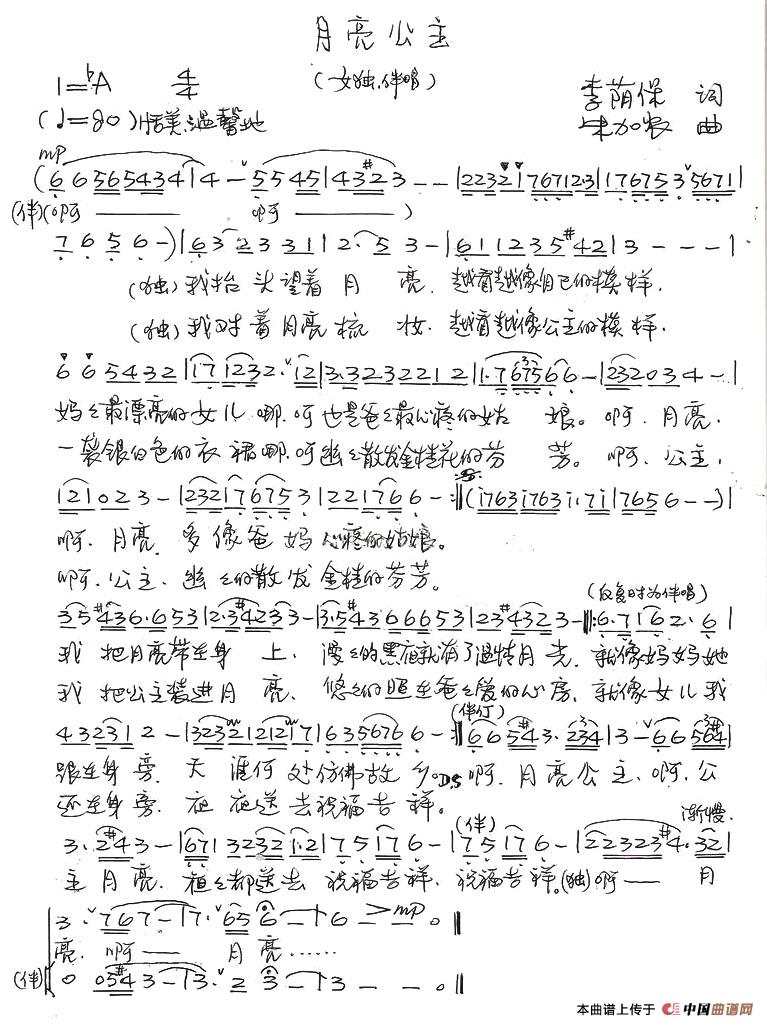 月亮公主
1=♭A 4/4 (女独.伴唱)
李荫保 词
(♩=80) 恬美.温馨地
朱加农 曲
mp
(6 6 565434|4 - 5 545|4 3 #2 3 - -|2232 1 767123|176753 5671|
(伴)(啊 —— 啊 —— )
7 6 5 6 -)|6 3 2 3 3 1|2 · 5 3 -|6 1 1 2 3 5 #4 2|3 - - -|
(独)我抬头望着月亮.越看越像自己的模样.
(独)我对着月亮梳妆.越看越像公主的模样.
6 6 5432|17 1232· 12|3·3 2 3 2 2 1 2|1·7 675 6 6 -|232034 -|
妈妈最漂亮的女儿哪.呵也是爸爸最心疼的姑娘。啊.月亮.
一袭银白色的衣裙哪.呵幽幽散发金桂花的芬芳。啊.公主.
121023 -|232176753|221766 -:‖(1763 1763 1·7 1|1765 6 - -)|
啊.月亮.多像爸妈心疼的姑娘。
啊.公主.幽幽的散发金桂的芬芳。
(反复时为伴唱)
35 #436·653|2·3 #4233 -|3·5 #4366653|23 #4323 -‖:6·7 162·6|
我把月亮带在身上.漫漫的黑夜就有了温情月光.就像妈妈她
我把公主装进月亮.悠悠的照在爸爸爱的心房.就像女儿我
(伴灯)
43231 2 -|3232 121217|635676 6 -:‖66 5#43·234|3 - 665#64|
跟在身旁.天涯何处仿佛故乡。D.S 啊.月亮公主.啊.公
还在身旁.夜夜送去祝福吉祥。
(伴) 渐慢
3·2#43 -|6713232 1·2|75176 -|75176 -|22323#4·32|
主月亮.祖祖都送去祝福吉祥.祝福吉祥。(独)啊 —— 月
3· 767 -|7·65 6 -|6 - mp - 0‖
亮.啊 —— 月亮……
(伴) 0 03#43 -|3·2 3 -|3 - - 0‖
本曲谱上传于 中国曲谱网